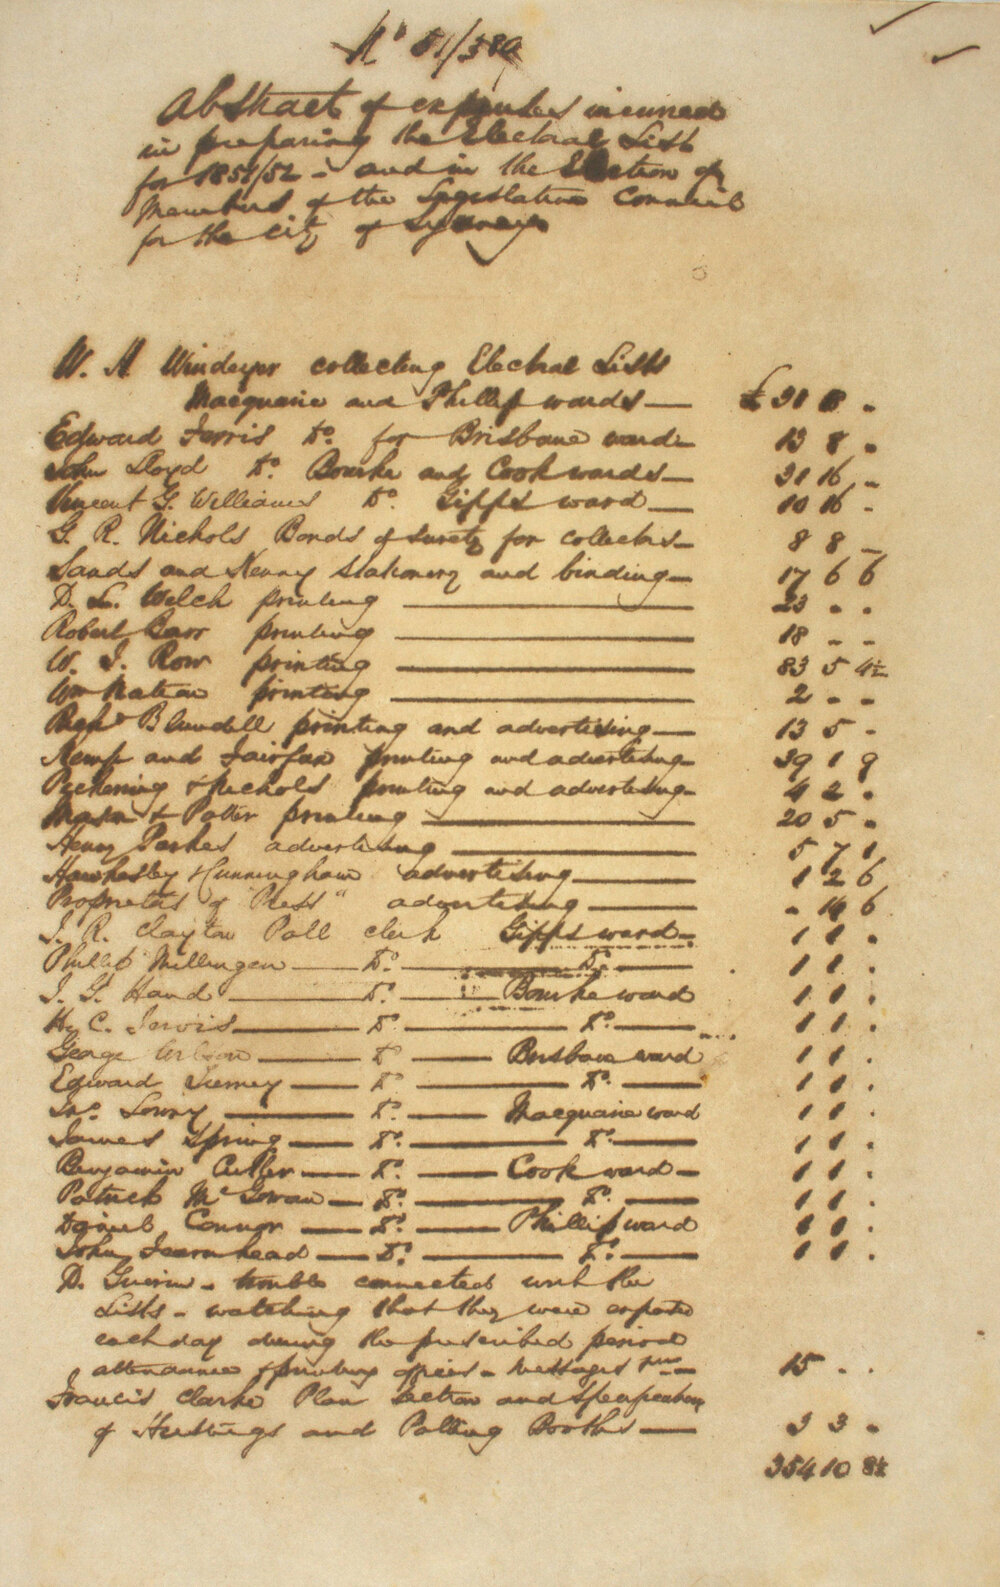 No 51/389
Abstract of expenses incurred
in preparing the Electoral Lists
for 1851/52 - and in the Election of
Members of the Legislative Council
for the City of Sydney
W. A Windeyer collecting Electral Lists
Macquarie and Phillip wards — £ 31 8 -
Edward Jervis Do. for Brisbane ward - 13 8 -
John Lloyd Do. Bourke and Cook wards - 31 16 -
Vincent G. Williams Do. Gipps ward - 10 16 -
G. R. Nichols Bonds of surety for collectors - 8 8 -
Sands and Kenny stationery and binding - 17 6 6
D. L. Welch printing — 23 - -
Robert Barr printing — 18 - -
W. J. Row printing — 83 5 4½
Wm printing — 2 - -
Blundell printing and advertising — 13 5 -
Kemp and Fairfax printing and advertising - 39 1 9
Pickering & Nichols printing and advertising - 4 2 -
Mason & Potter printing — 20 5 -
Henry Parkes advertising — 5 7 1
Hawkesley & Cunningham advertising — 1 2 6
Proprietors of "Press" advertising — - 14 6
J. R. Clayton Poll clerk Gipps ward - 1 1 -
Phillip Millingen — Do. — Do. — 1 1 -
J. G. Hand — Do. — Bourke ward 1 1 -
H. C. Jervis — Do. — Do. — 1 1 -
George Wilson — Do — Brisbane ward 1 1 -
Edward Tierney — Do — Do. — 1 1 -
Jno. Lowry — Do. — Macquarie ward 1 1 -
James Spring — Do. — Do. — 1 1 -
Benjamin Cutler — Do. — Cook ward - 1 1 -
Patrick McGowan — Do. — Do. — 1 1 -
Daniel Connor — Do. — Phillip ward 1 1 -
John Fearnhead — Do. — Do. — 1 1 -
D. Guerin - trouble connected with the
Lists - watching that they were exposed
each day during the prescribed period
attendance & printing offices - messages &c — 15 - -
Francis Clarke Plan section and specification
of Hustings and Polling Booths — 3 3 -
354 10 8½